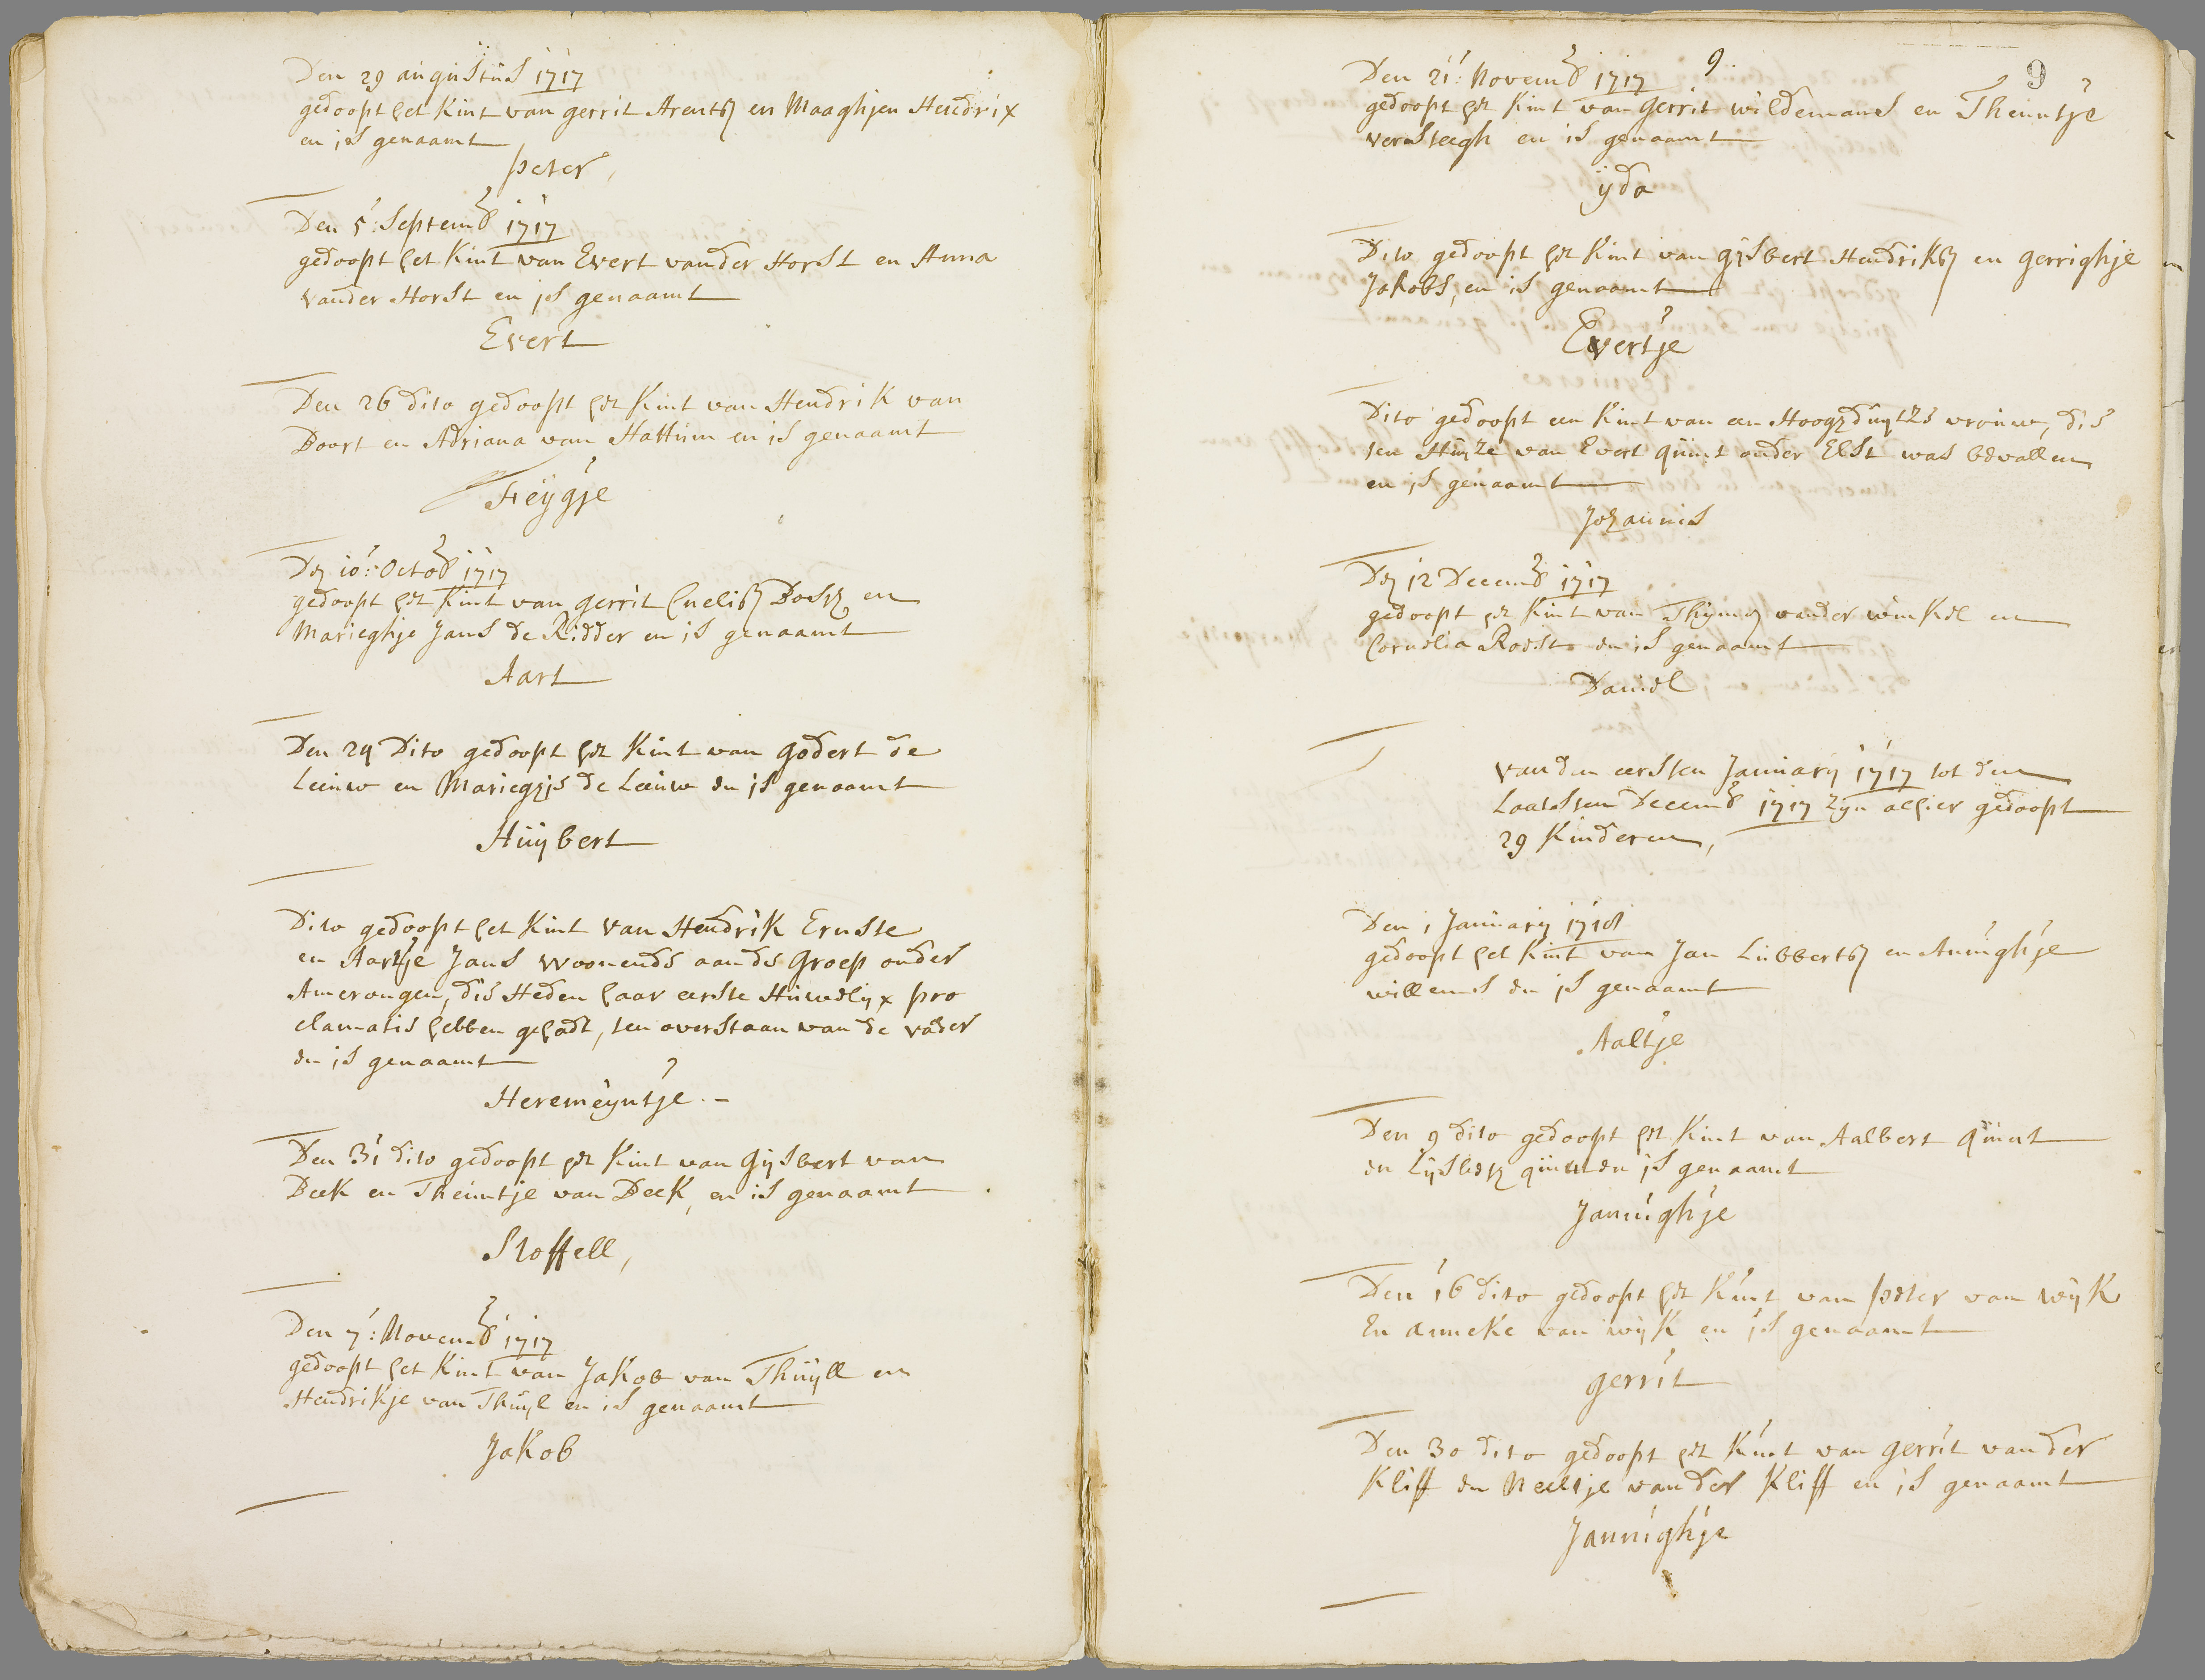 Den 29 augustus 1717
gedoopt het Kint van gerrit Arentsz en Maaghjen Hendrix
en is genaamt
peter,
Den 5: Septemb 1717
gedoopt het Kint van Evert vander Horst en Anna
vander Horst en is genaamt
Evert
Den 26 dito gedoopt het Kint van Hendrik van
Doort en Adriana van Hattum en is genaamt
Feÿgje
Den 10: Octob 1717
gedoopt het Kint van gerrit Cnelisz en
Marieghje Jans de Ridder en is genaamt
Aart
Den 24 Dito gedoopt het Kint van godert de
Leeuw en Mariegje de Leeuw en is genaamt
Huÿbert
Dito gedoopt het Kint van Hendrik Ernste
en Aartje Jans woonende aan de Groep onder
Amerongen, die Heden haar eerste Huwelyx pro
clamatie hebben gehadt, ten overstaan van de vader
en is genaamt
Heremeyntje. -
Den 31 dito gedoopt het Kint van Gijsbert van
Deek en Theuntje van Deek, en is genaamt
Stoffell,
Den 7: Novemb 1717
gedoopt het Kint van Jakob van Thuÿll en
Hendrikje van Thuyl en is genaamt
Jakob
9. 9
Den 21: Novemb 1717
gedoopt het Kint van Gerrit wildemans en Theuntje
versteegh en is genaamt
ÿda
Dito gedoopt het Kint van gysbert Hendriksz en gerrighje
Jakobs, en is genaamt
Evertje
Dito gedoopt een Kint van een Hooghduytze vrouw, die
ten Huyze van Evert quint onder Elst was bevallen
en is genaamt
Johannis
Den 12 Decemb 1717
gedoopt het Kint van vander winkel en
Cornelia Roest en is genaamt
Daniel
van den eersten January 1717 tot den
Laatsten Decemb 1717 zyn alhier gedoopt
29 Kinderen,
Den 1 January 1718
gedoopt het Kint van Jan Lubbertsz en Annighje
willems en is genaamt
Aaltje
Den 9 dito gedoopt het Kint van Aalbert quint
en Lijsbeth quint en is genaamt
Jannighje
Den 16 dito gedoopt het Kint van peter van wÿk
En anneke van wÿk en is genaamt
gerrit
Den 30 dito gedoopt het Kint van gerrit vander
Kliff en Neeltje vander Kliff en is genaamt
Jannighje